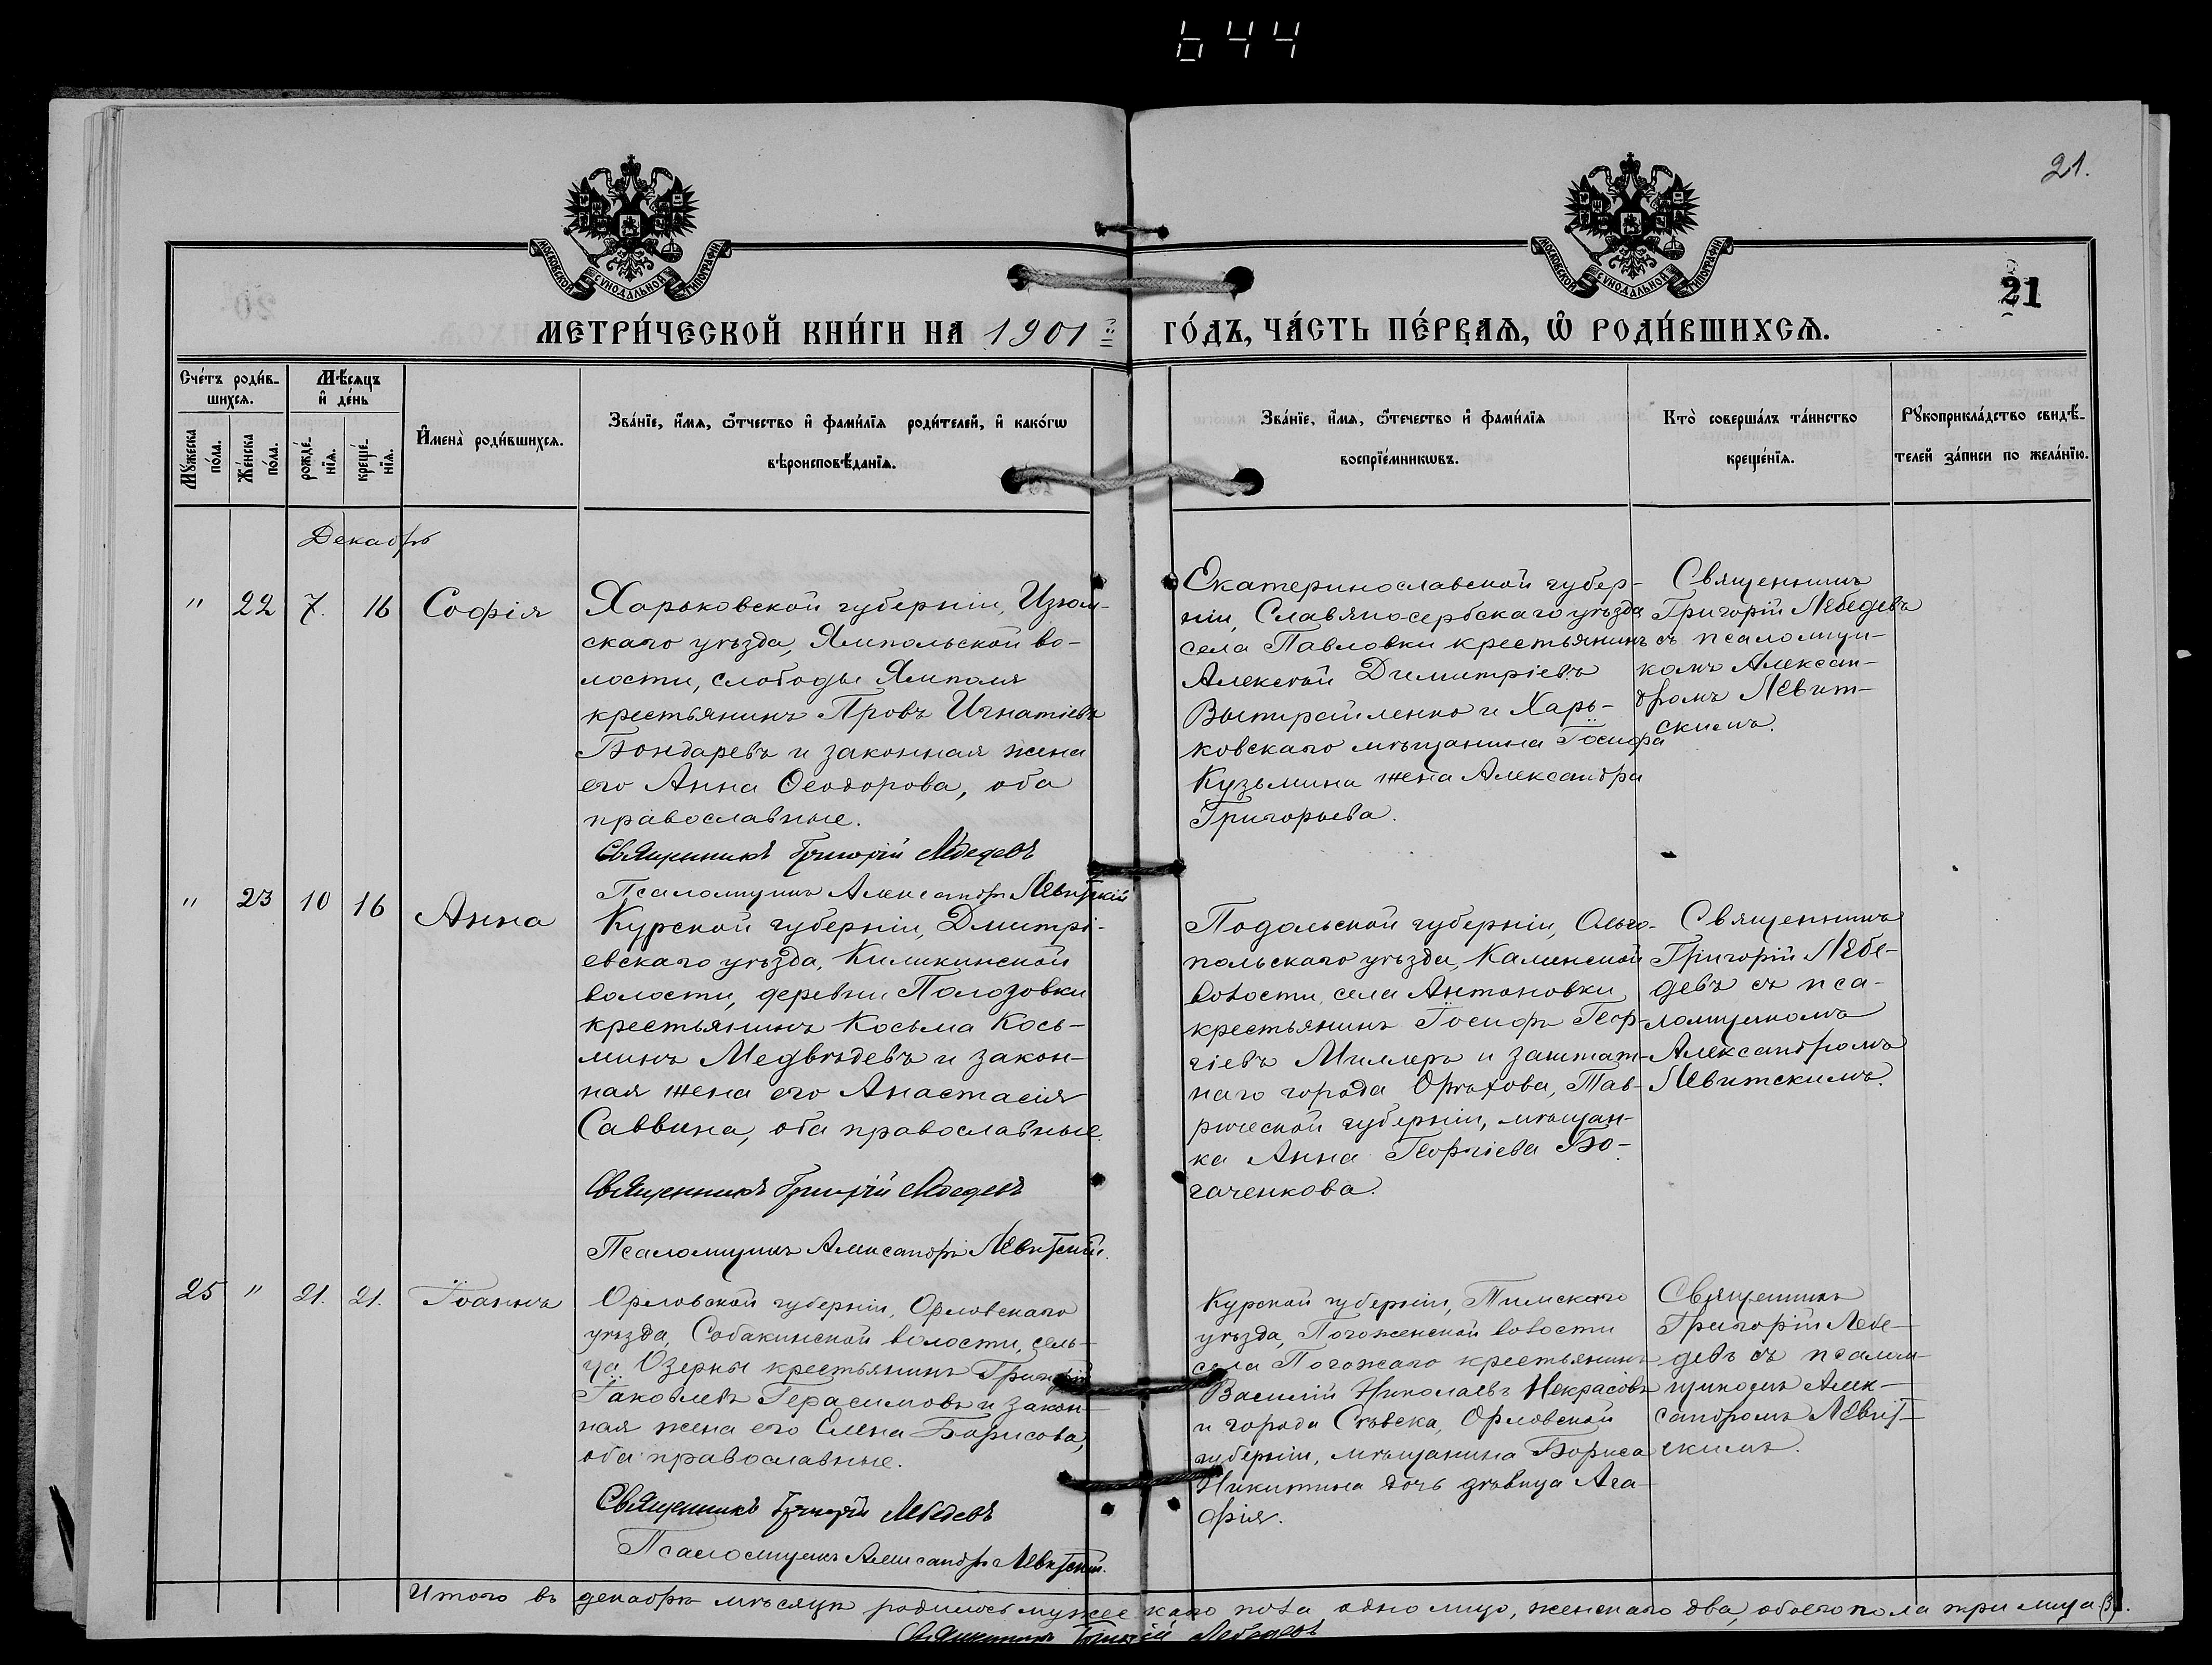 644
21.
МОСКОВСКОЙ СѴНОДАЛЬНОЙ ТИПОГРАФІИ
МОСКОВСКОЙ СѴНОДАЛЬНОЙ ТИПОГРАФІИ
21
МЕТРИ́ЧЕСКОЙ КНИ́ГИ НА 1901й ГО́ДЪ, ЧА́СТЬ ПЕ́РВАѦ, Ѿ РОДИ́ВШИХСѦ.
Сче́тъ роди́в-
шихсѧ.
Мѣ́сяцъ
и҆ де́нь
Мꙋ́жеска
по́ла.
Же́нска
по́ла.
рожде́-
нїѧ.
креще́-
нїѧ.
И҆мена̀ роди́вшихсѧ.
Зва́нїе, и҆́мѧ, ѻ҆́тчество и҆ фами́лїѧ роди́телей, и҆ како́гѡ
вѣроисповѣ́данїѧ.
Зва́нїе, и҆́мѧ, ѻ҆́течество и҆ фами́лїѧ
воспрїе́мникѡвъ.
Кто̀ соверша́лъ та́инство
креще́нїѧ.
Рꙋкоприкла́дство свидѣ́-
телей за́писи по жела́нїю.
Декабрь
" 22 7. 16 Софія
Харьковской губерніи, Изюм-
скаго уѣзда, Ямпольской во-
лости, слободы Ямполя
крестьянинъ Провъ Игнатіевъ
Бондаревъ и законная жена
его Анна Ѳеодорова, оба
православные.
Священникъ Григорій Лебедевъ
Псаломщикъ Александръ Левитскій
Екатеринославской губер-
ніи, Славяносербскаго уѣзда
села Павловки крестьянинъ
Алексѣй Димитріевъ
и Харь-
ковскаго мѣщанина Іосифа
Кузьмина жена Александра
Григорьева.
Священникъ
Григорій Лебедевъ
съ псаломщи-
комъ Алексан-
дромъ Левит-
скимъ.
" 23 10 16 Анна
Курской губерніи, Дмитрі-
евскаго уѣзда, Киликинской
волости, деревни Полозовки
крестьянинъ Косьма Кось-
минъ Медвѣдевъ и закон-
ная жена его Анастасія
Саввина, оба православные.
Священникъ Григорій Лебедевъ
Псаломщикъ Александръ Левитскій.
Подольской губерніи, Ольго-
польскаго уѣзда, Каменской
волости, села Антоновки
крестьянинъ Іосифъ Геор-
гіевъ Миллеръ и заштат-
наго города Орѣхова, Тав-
рической губерніи, мѣщан-
ка Анна Георгіева Бо-
гаченкова.
Священникъ
Григорій Лебе-
девъ съ пса-
ломщикомъ
Александромъ
Левитскимъ.
25 " 21. 21. Іоаннъ
Орловской губерніи, Орловскаго
уѣзда, Собакинской волости, сель-
ца Озерны крестьянинъ Григорій
Іаковлевъ Герасимовъ и закон-
ная жена его Елена Борисова,
оба православные.
Священникъ Григорій Лебедевъ
Псаломщикъ Александръ Левитскій.
Курской губерніи, Тимскаго
уѣзда, Погоженской волости
села Погожаго крестьянинъ
Василій Николаевъ Некрасовъ
и города Сѣвска, Орловской
губерніи, мѣщанина Бориса
Никитина дочь дѣвица Ага-
фія.
Священникъ
Григорій Лебе-
девъ съ псалом-
щикомъ Алек-
сандромъ Левит-
скимъ.
Итого въ декабрѣ мѣсяцѣ родилось мужескаго пола одно лицо, женскаго два, обоего пола три лица (3).
Священникъ Григорій Лебедевъ